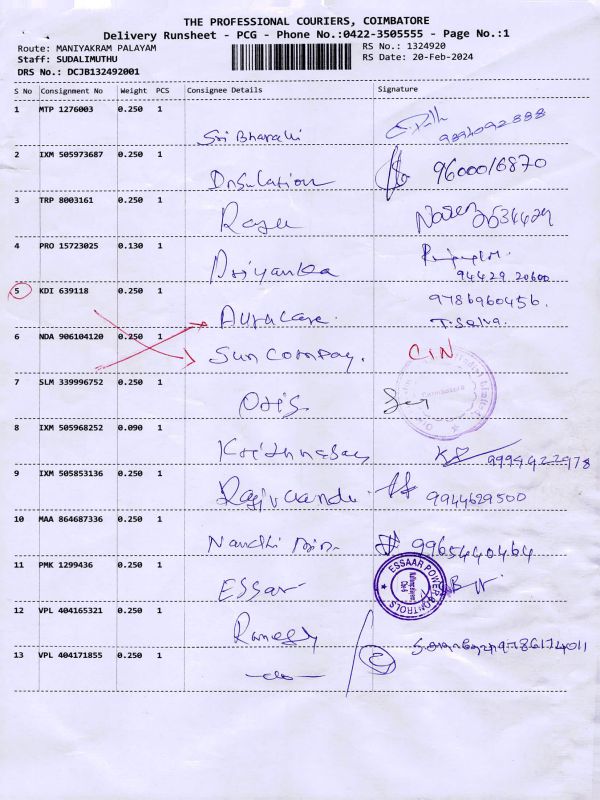 THE PROFESSIONAL COURIERS, COIMBATORE
Delivery Runsheet - PCG - Phone No.:0422-3505555 - Page No.:1
Route: MANIYAKRAM PALAYAM
RS No.: 1324920
Staff: SUDALIMUTHU
RS Date: 20-Feb-2024
DRS No.: DCJB132492001
S No Consignment No Weight PCS Consignee Details Signature
1 MTP 1276003 0.250 1
Sri Bharathi
2 IXM 505973687 0.250 1
Insulation 9600016870
3 TRP 8003161 0.250 1
4 PRO 15723025 0.130 1
Priyanka 94429 20600
5 KDI 639118 0.250 1
Auracare. 9786960456.
T. Selva.
6 NDA 906104120 0.250 1
Sun Compay. CIN
7 SLM 339996752 0.250 1
Otis
8 IXM 505968252 0.090 1
9994922978
9 IXM 505853136 0.250 1
9944629500
10 MAA 864687336 0.250 1
Nandhi 9965440464
11 PMK 1299436 0.250 1
ESSAR
ESSAAR POWER CONTROLS
12 VPL 404165321 0.250 1
Ramesh
9786174011
13 VPL 404171855 0.250 1
-do-